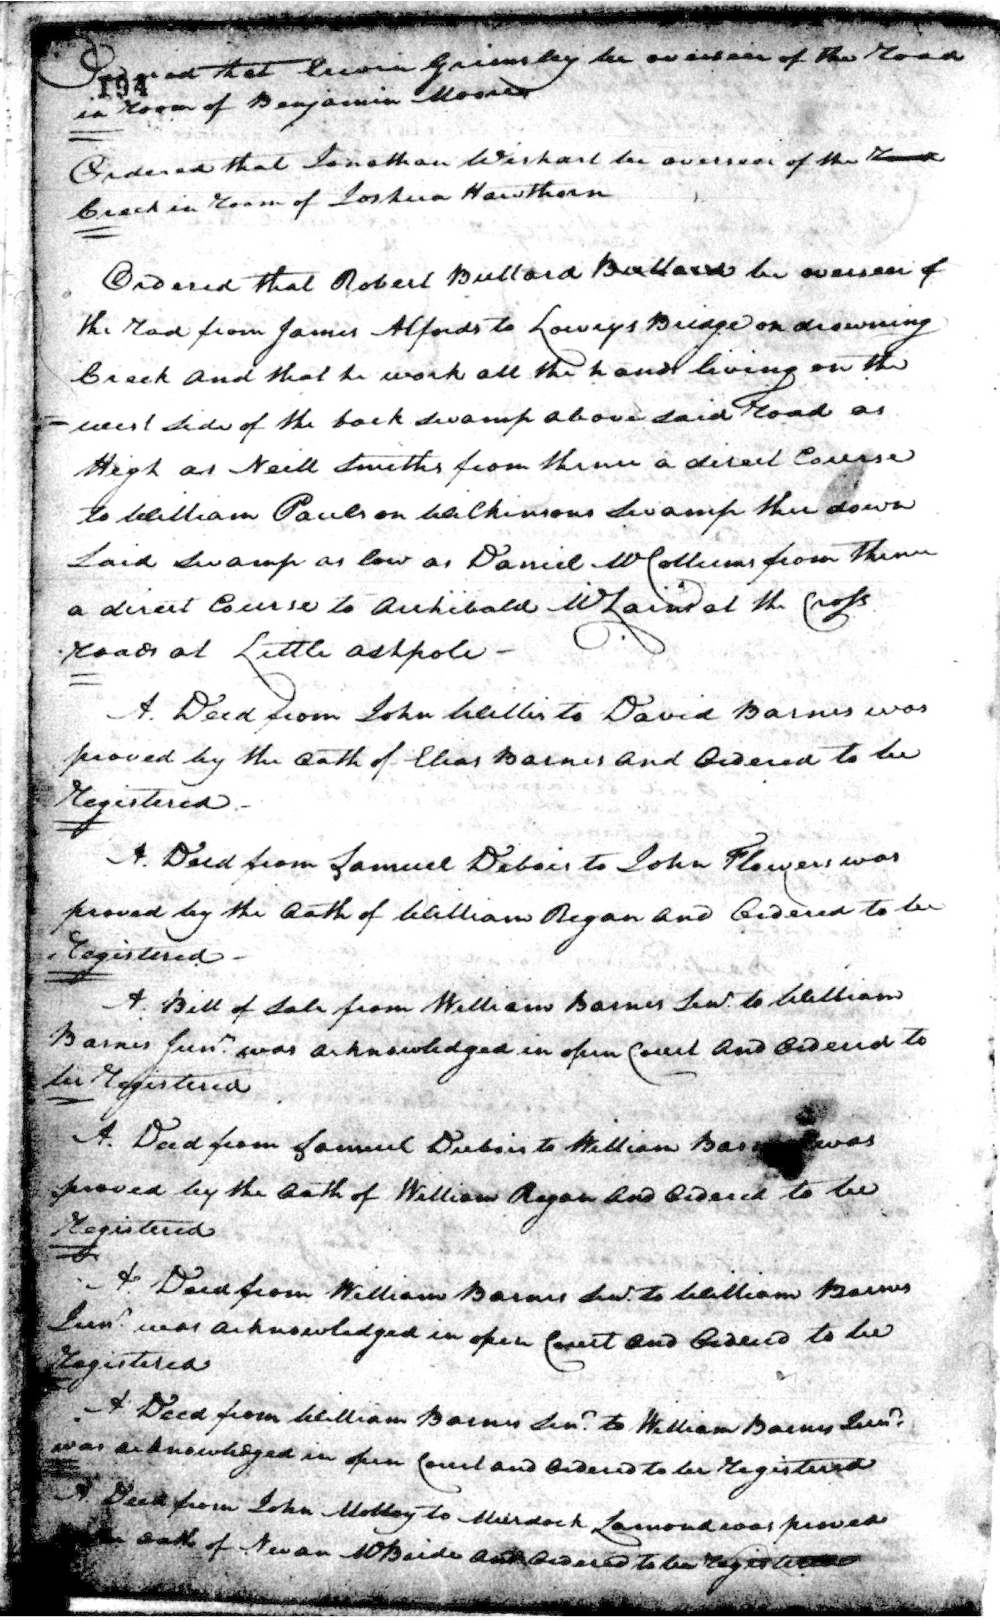 Ordered that Erwin Grimsley be overseer of the Road
194
in room of Benjamin Moore
Ordered that Jonathan Wishart be overseer of the Road
Creek in room of Joshua Hawthorn
Ordered that Robert Bullard Bullard be overseer of
the road from James Alfords to Lowrys Bridge on drowning
Creek and that he work all the hands living on the
west side of the back swamp above said Road as
High as Neill Smiths from thence a direct Course
to William Pauls on Wilkinsons Swamp then down
said swamp as low as Daniel McCollums from thence
a direct Course to Archibald McLains at the Cross
roads at Little ashpole -
A. Deed from John Willis to David Barnes was
proved by the oath of Elias Barnes and Ordered to be
Registered -
A. Deed from Samuel Debois to John Flowers was
proved by the oath of William Regan and Ordered to be
Registered -
A. Bill of Sale from William Barnes Senr. to William
Barnes Junr. was acknowledged in open Court and Ordered to
be Registered
A. Deed from Samuel Dubois to William was
proved by the oath of William Regan and Ordered to be
Registered
A. Deed from William Barnes Senr. to William Barnes
Junr. was acknowledged in open Court and Ordered to be
Registered
A Deed from William Barnes Senr. to William Barnes Junr.
was acknowledged in open Court and Ordered to be Registered
A. Deed from John to Murdock Lamond was proved
oath of Nevan McBride and Ordered to be Registered